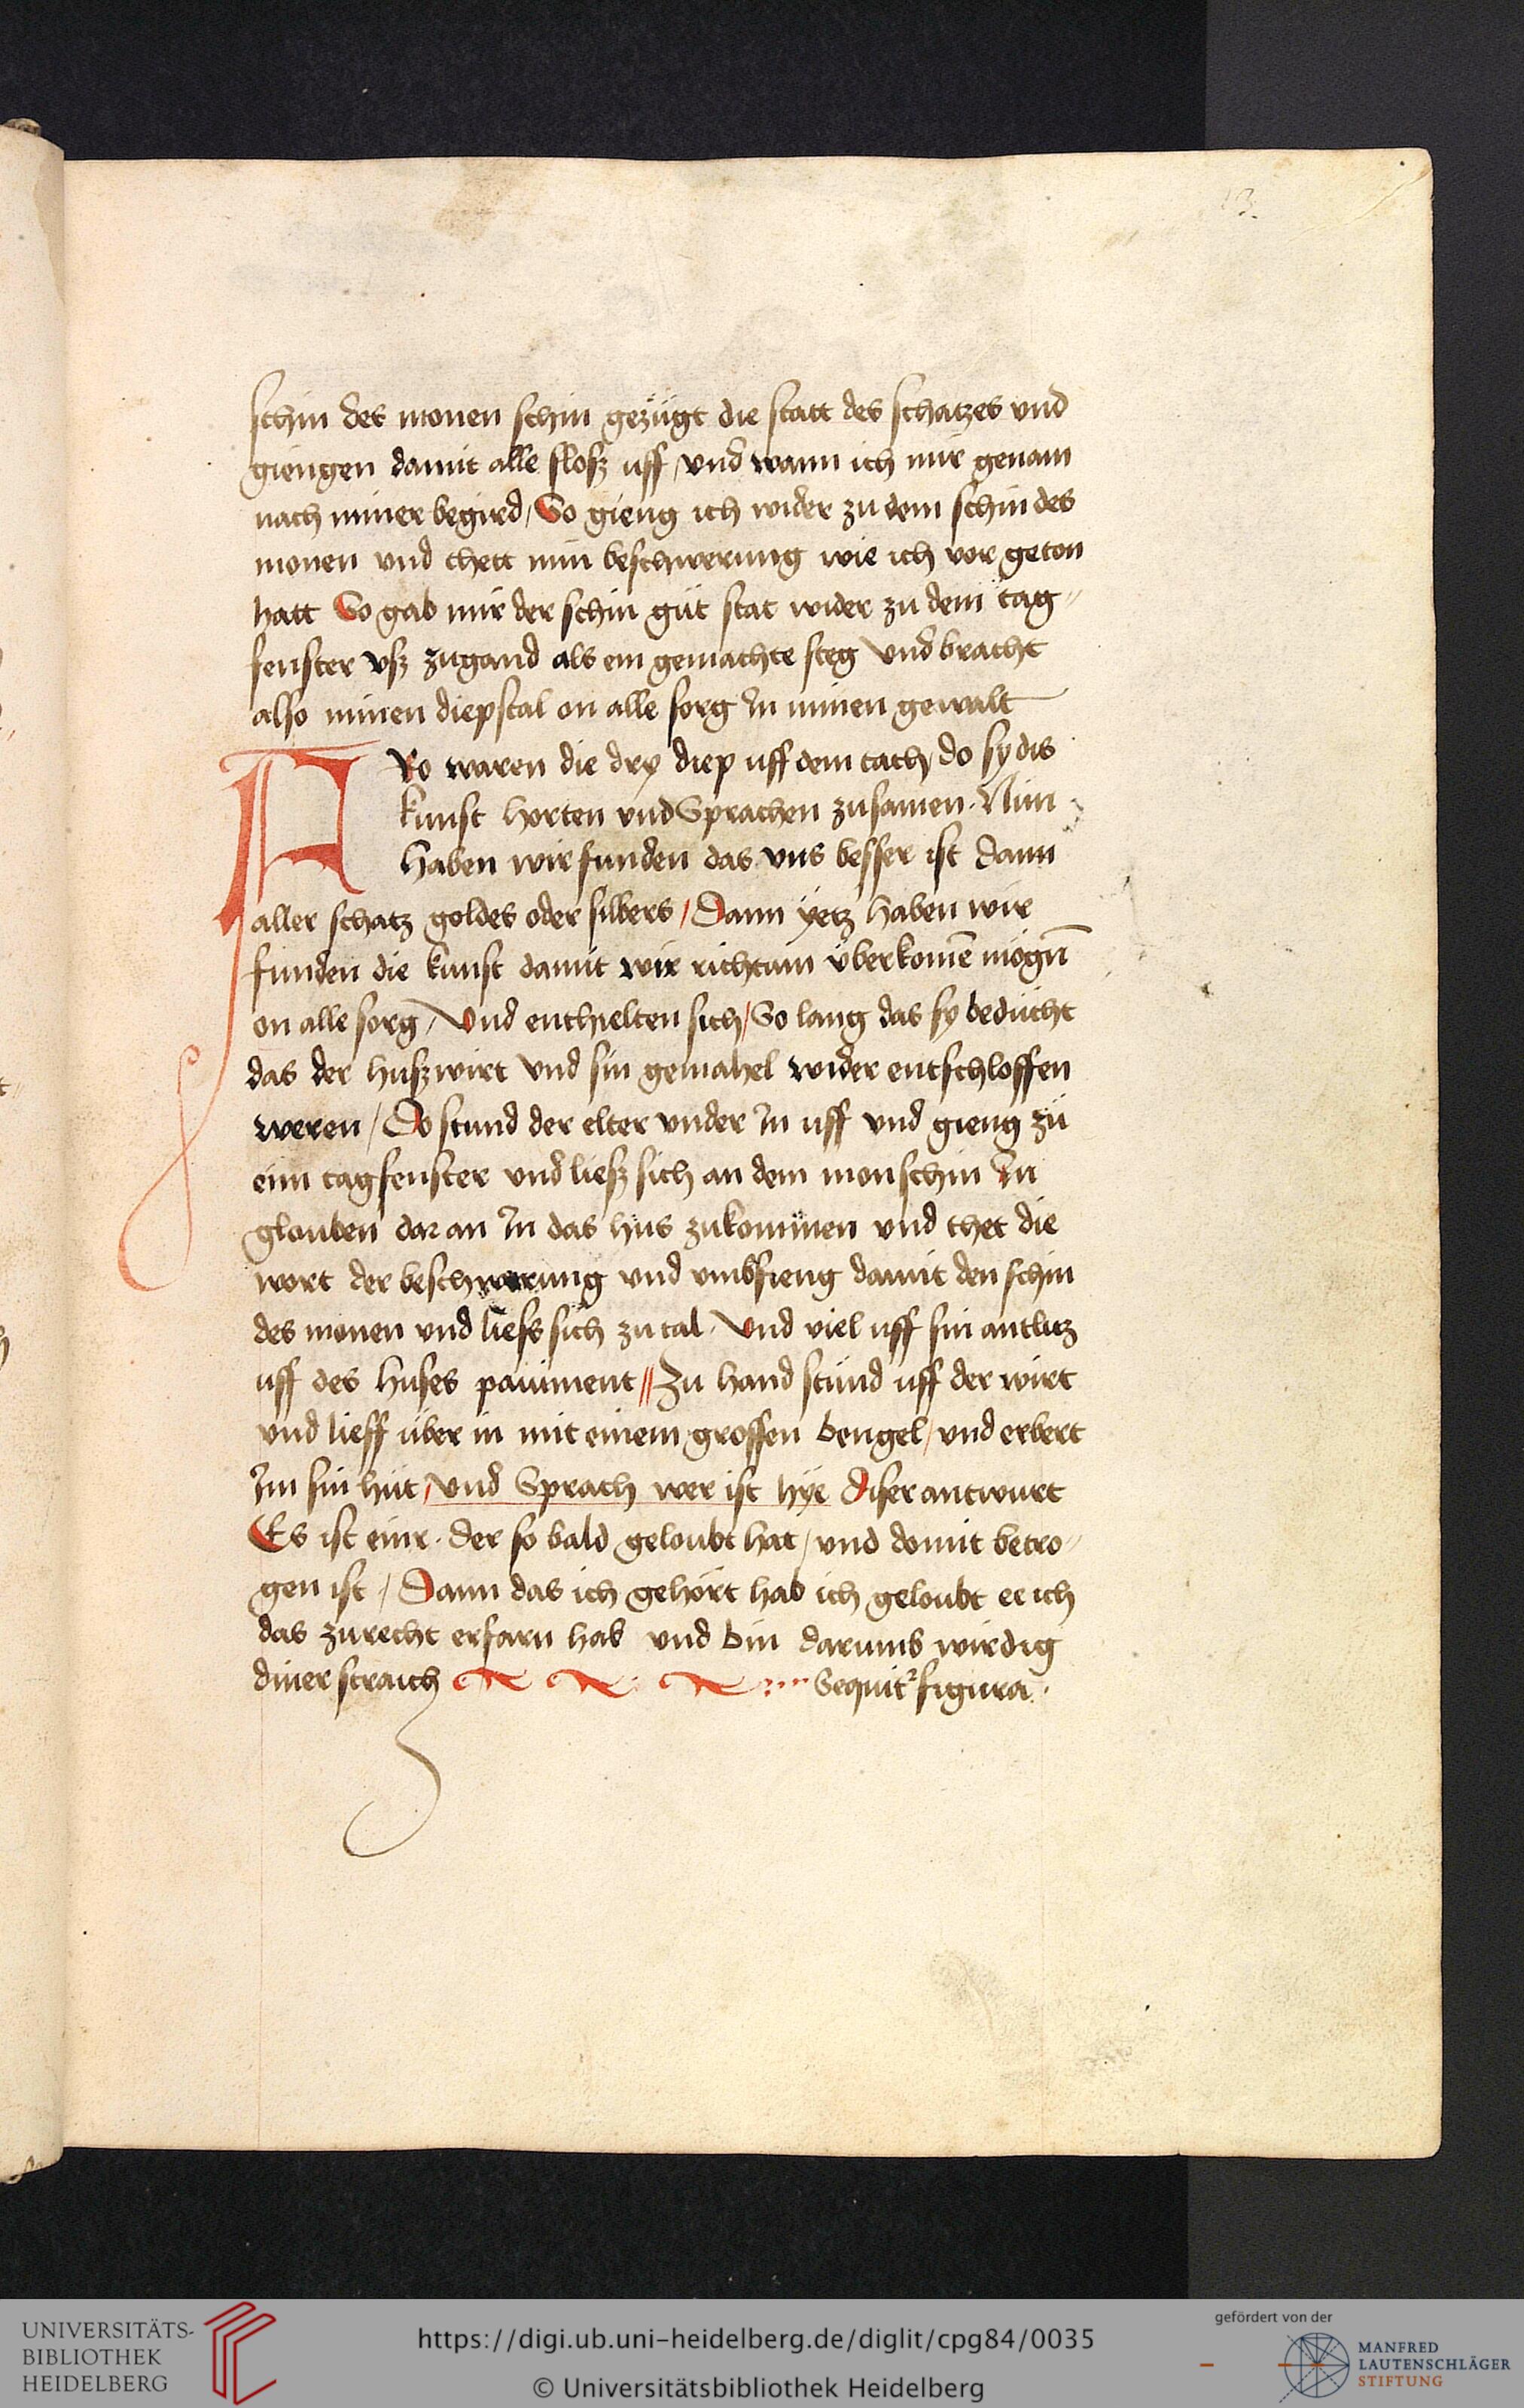 13.
schin des monen schin gezügt die statt des schatzes vnd
giengen damit alle slosz uff / vnd wann ich mir genam
nach miner begird / So gieng ich wider zu dem schin des
monen vnd thett min beschwerung wie ich vor geton
hatt So gab mir der schin güt stat wider zu dem tag„
fenster vsz zugand als ein gemachte steg Vnd bracht
also minen diepstal on alle sorg In minen gewalt
FRo waren die dry diep uff dem tach / do sy dis
kunst horten vnd Sprachen zusamen. Nün
haben wir funden das vns besser ist dann
aller schatz goldes oder silbers / Dann yetz haben wir
funden die kunst damit wir richtum überkomē mögn̄
on alle sorg / Vnd enthielten sich / So lang das sy bedücht
das der huszwirt vnd sin gemahel wider entschloffen
weren / Do stund der elter vnder In uff vnd gieng zü
eim tagfenster vnd liesz sich an dem monschin In
glouben dar an In das hüs zukommen vnd thet die
wort der beschwerung vnd vmbfieng damit den schin
des monen vnd liess sich zu tal. Vnd viel uff sin antlitz
uff des huses paument // Zu hand stünd uff der wirt
vnd lieff über in mit einem grossen bengel / vnd erbert
Im sin hüt / vnd Sprach wer ist hye Diser antwurt
Es ist einr. der so bald geloubt hat / vnd domit betro„
gen ist / Dann das ich gehört hab ich geloubt ee ich
das zurecht erfarn hab vnd bin darumb wirdig
diner straich Sequit² figura.
UNIVERSITÄTS-
BIBLIOTHEK
HEIDELBERG
https://digi.ub.uni-heidelberg.de/diglit/cpg84/0035
© Universitätsbibliothek Heidelberg
gefördert von der
MANFRED
LAUTENSCHLÄGER
STIFTUNG